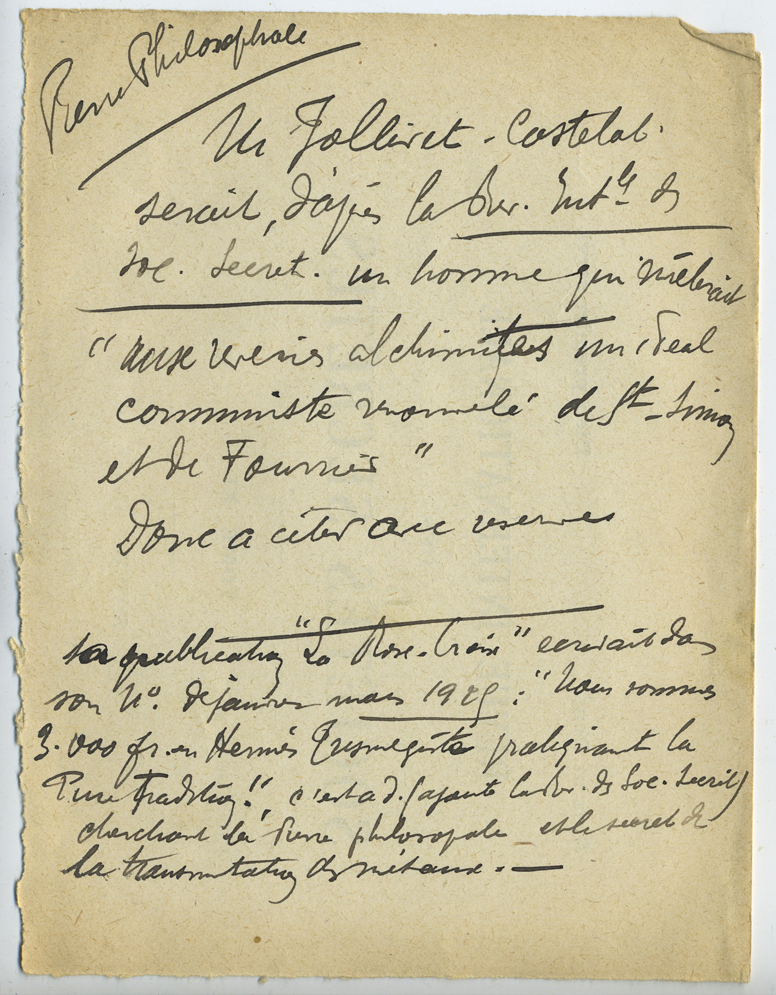 Pierre Philosophale
Mr Jollivet-Castelot.
serait, d'après la Rev. Int.le des
Soc. Secret. un homme qui mêlerait
"aux reveries alchimiques un ideal
communiste renouvelé de St-Simon
et de Fourrier"
Donc a citer avec reserves
sa publication "La Rose-Croix" ecrivait dans
son No. de janvier mars 1925 : "Nous sommes
3.000 fr. en Hermès Trismegiste pratiquant la
Pure Tradition!", c'est a d. (ajoute la Rev. des Soc. Secrètes)
cherchant la Pierre philosopale et le secret de
la transmutation des métaux. —